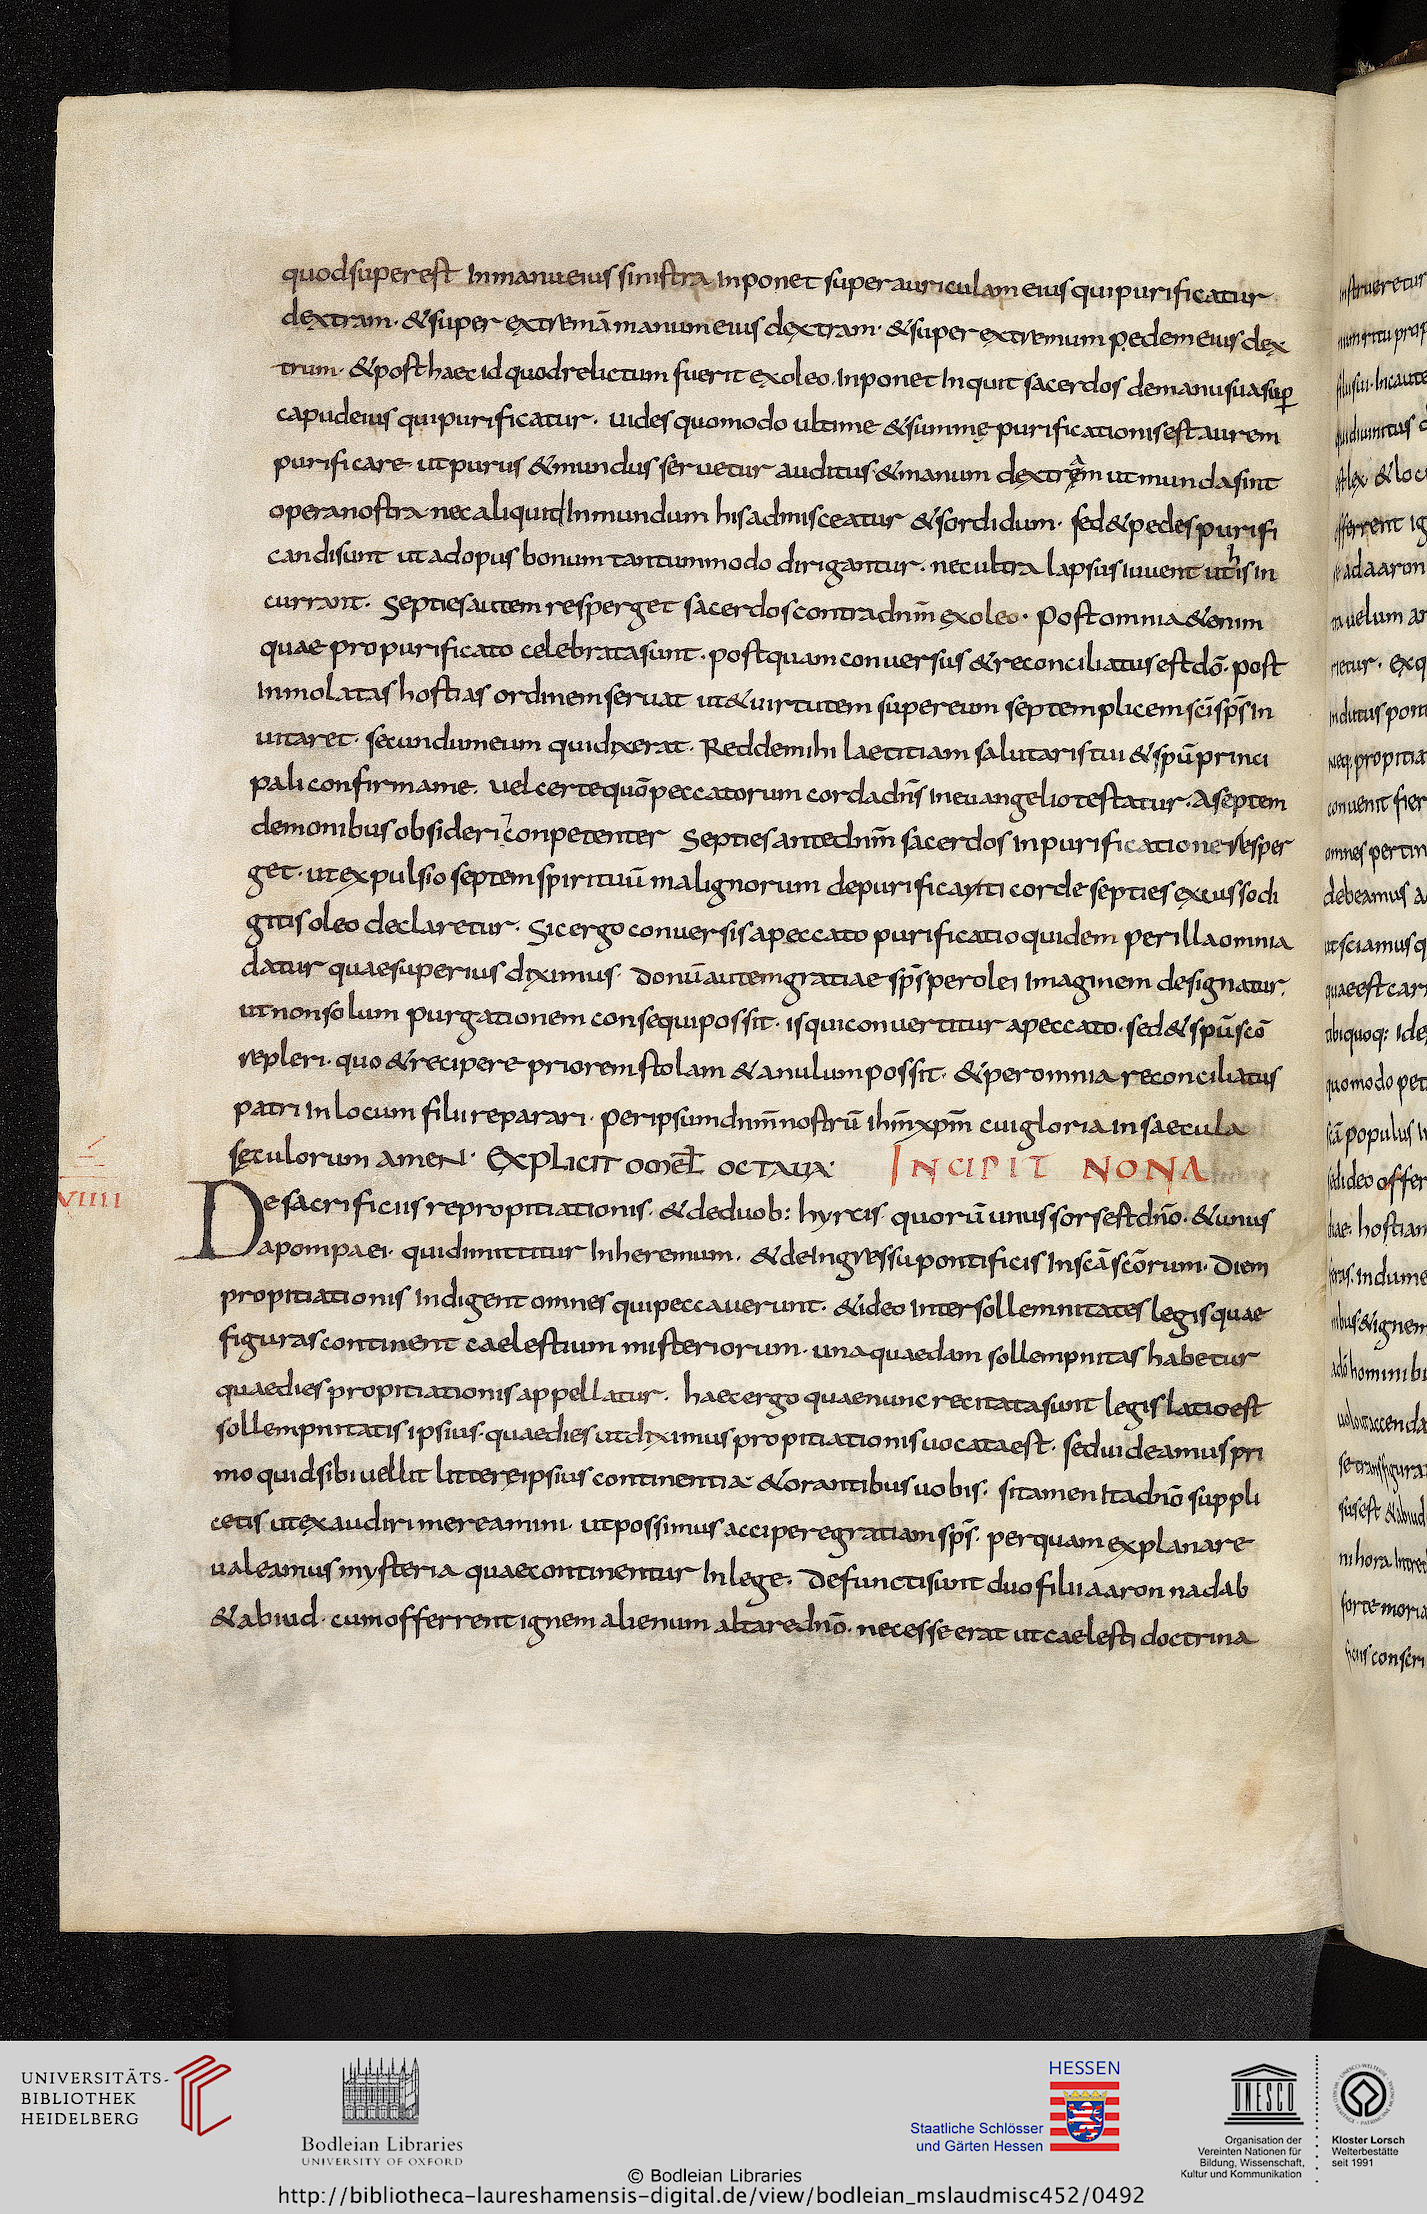 quod superest In manu eius sinistra Inponet super auriculam eius qui purificatur
dextram· & super extremā manum eius dextram· & super extremum pedem eius dex
trum· & post haec id quod relictum fuerit ex oleo. Inponet Inquit sacerdos de manu sua sup̄
capud eius qui purificatur· uides quomodo ultime & summę purificationis est aurem
purificare ut purus & mundus seruetur auditus & manum dextram ut munda sint
opera nostra nec aliquid Inmundum his admisceatur & sordidum· sed & pedes purifi
candi sunt ut ad opus bonum tantummodo dirigantur. nec ultra lapsus iuuent utHis in
currant· Septies autem resperget sacerdos contra dn̄m ex oleo· Post omnia & enim
quae pro purificato celebrata sunt. postquam conuersus & reconciliatus est dō· post
Inmolatas hostias ordinem seruat ut & uirtutem super eum septemplicem sc̄i sp̄s In
uitaret· secundum eum qui dixerat· Redde mihi laetitiam salutaris tui & spū princi
pali confirma me. uel certe quō peccatorum corda dn̄s In euangelio testatur· A septem
demonibus obsideri conpetenter Septies ante dn̄m sacerdos In purificatione resper
get· ut expulsio septem spirituū malignorum de purificanti corde septies excusso di
gitis oleo declaretur· Sic ergo conuersis a peccato purificatio quidem per illa omnia
datur quae superius diximus· donū autem gratiae sp̄s per olei Imaginem designatur.
ut non solum purgationem consequi possit· is qui conuertitur a peccato· sed & spū scō
repleri· quo & recipere priorem stolam & anulum possit· & per omnia reconciliatus
patri In locum filii reparari· per ipsum dn̄m nostrū ih̄m xp̄m cui gloria In saecula
sęculorum amen· Explicit omel̄ octaua· Incipit nona
VIIII
De sacrificiis repropitiationis· & de duob: hyrcis quorū unus sors est dn̄o· & unus
apompaei· qui dimittitur In heremum· & de Ingressu pontificis In scā scōrum· Diem
propitiationis Indigent omnes qui peccauerunt· & ideo Inter sollemnitates legis quae
figuras continent caelestium misteriorum· una quaedam sollempnitas habetur
quae dies propitiationis appellatur· haec ergo quae nunc recitata sunt legislatio est
sollempnitatis ipsius· quae dies ut diximus propitiationis uocata est· sed uideamus pri
mo quid sibi uellit litterę ipsius continentia· & orantibus uobis· si tamen Ita dn̄o suppli
cetis ut exaudiri mereamini· ut possimus accipere gratiam sp̄s· per quam explanare
ualeamus mysteria quae continentur In lege· Defuncti sunt duo filii aaron nadab
& abiud· cum offerrent ignem alienum altare dn̄o· necesse erat ut caelesti doctrina
UNIVERSITÄTS-
BIBLIOTHEK
HEIDELBERG
Bodleian Libraries
UNIVERSITY OF OXFORD
HESSEN
Staatliche Schlösser
und Gärten Hessen
UNESCO
Organisation der
Vereinten Nationen für
Bildung, Wissenschaft,
Kultur und Kommunikation
Kloster Lorsch
Welterbestätte
seit 1991
© Bodleian Libraries
http://bibliotheca-laureshamensis-digital.de/view/bodleian_mslaudmisc452/0492